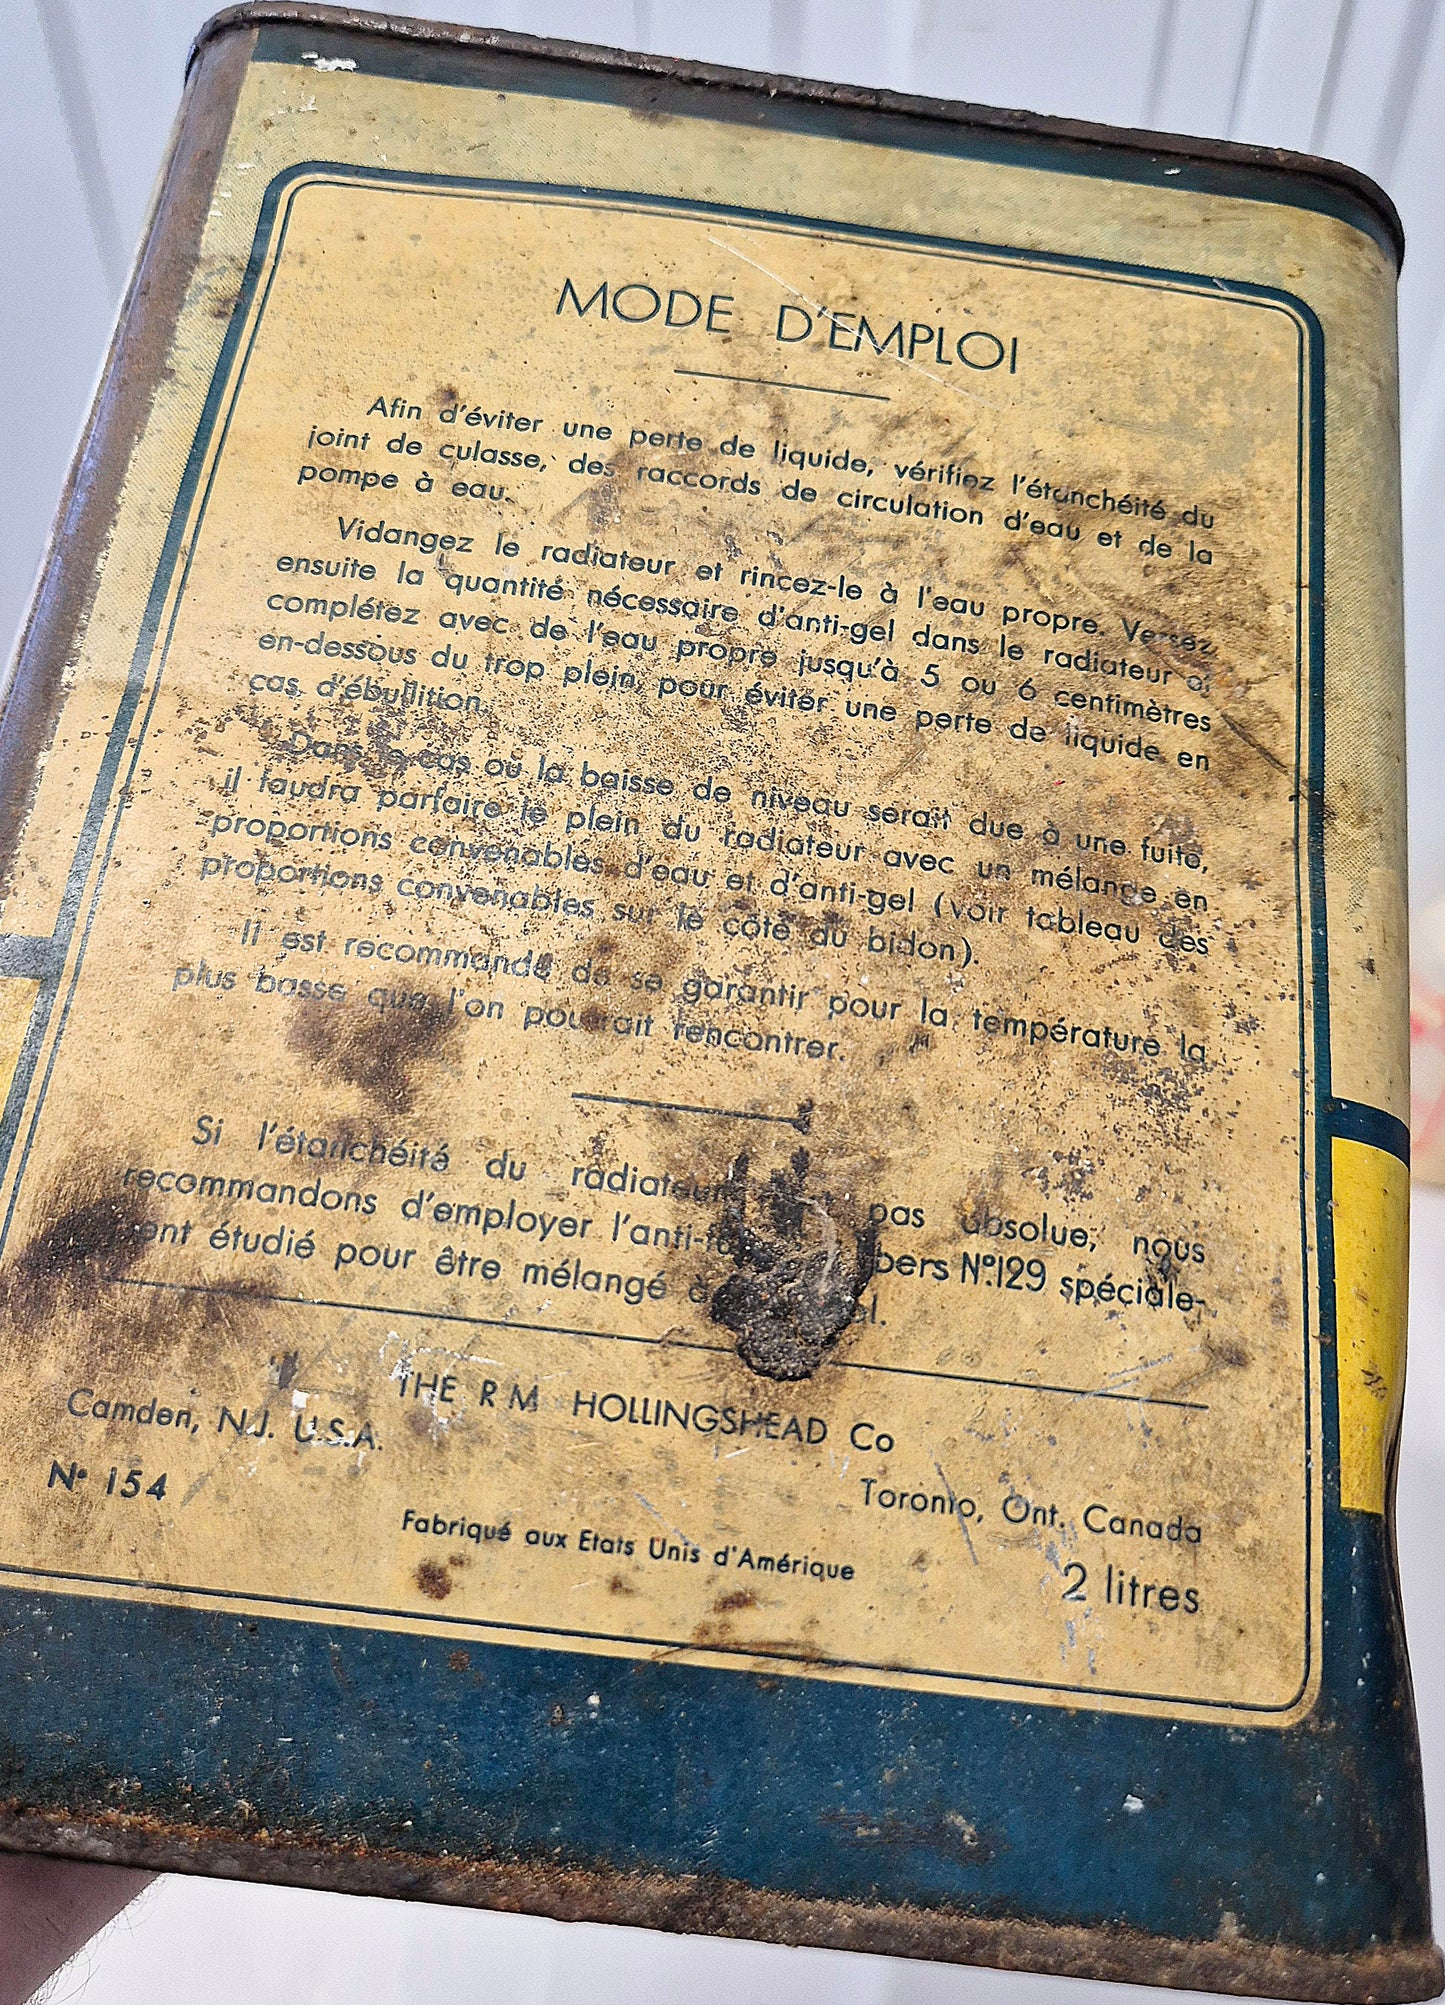 MODE D'EMPLOI
Afin d'éviter une perte de liquide, vérifiez l'étanchéité du
joint de culasse, des raccords de circulation d'eau et de la
pompe à eau.
Vidangez le radiateur et rincez-le à l'eau propre. Versez
ensuite la quantité nécessaire d'anti-gel dans le radiateur et
complétez avec de l'eau propre jusqu'à 5 ou 6 centimètres
en-dessous du trop plein, pour éviter une perte de liquide en
cas d'ébullition.
Dans le cas où la baisse de niveau serait due à une fuite,
il faudra parfaire le plein du radiateur avec un mélange en
proportions convenables d'eau et d'anti-gel (voir tableau des
proportions convenables sur le côté du bidon).
Il est recommandé de se garantir pour la température la
plus basse que l'on pourrait rencontrer.
Si l'étanchéité du radiateur pas absolue, nous
recommandons d'employer l'anti- Nº.129 spéciale-
ment étudié pour être mélangé à
THE R M HOLLINGSHEAD Co
Camden, N.J. U.S.A.
Toronto, Ont. Canada
Nº 154
Fabriqué aux Etats Unis d'Amérique
2 litres